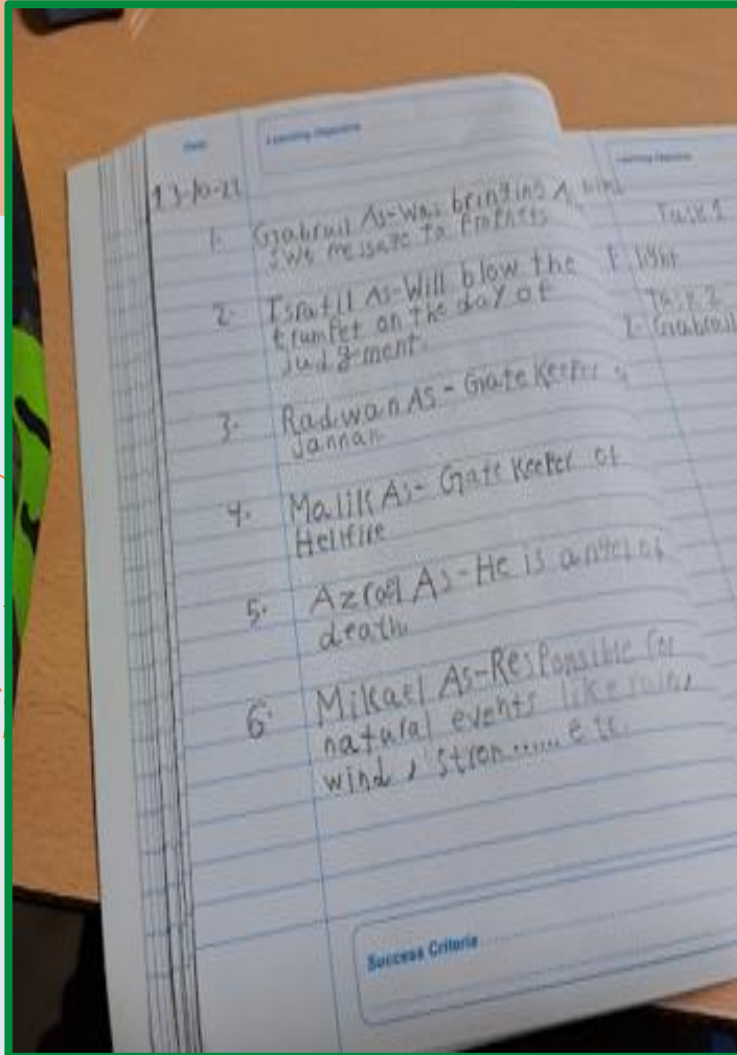 Date
Learning Objective
13-10-21
1. Gabrail As-Was bringing
swt message to Prophets
2. Israfil As-Will blow the
trumpet on the day of
judgment.
3. Radwan As-Gate Keeper of
Jannah
4. Malik As-Gate Keeper of
Hellfire
5. Azrael As-He is angel of
death
6. Mikael As-Responsible for
natural events like rain,
wind, strom......etc.
Success Criteria
Learning Objective
Task 1
1. light
Task 2
2. Gabrail